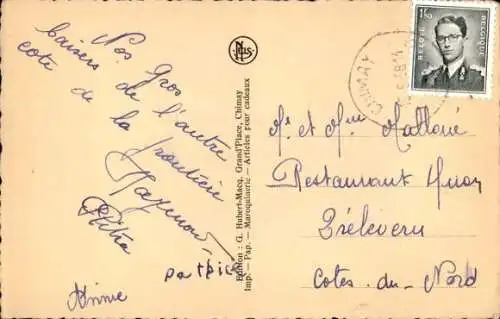 Nos gros
baisers de l'autre
côté de la frontière
Raymond
Petra
patrice
Annie
Nels
Edition : G. Hubert-Macq, Grand'Place, Chimay
Imp. - Pap. - Maroquinerie - Articles pour cadeaux
BELGIE
BELGIQUE
CHIMAY
Mr et Mme Malloué
Restaurant
Trélévern
Côtes-du-Nord